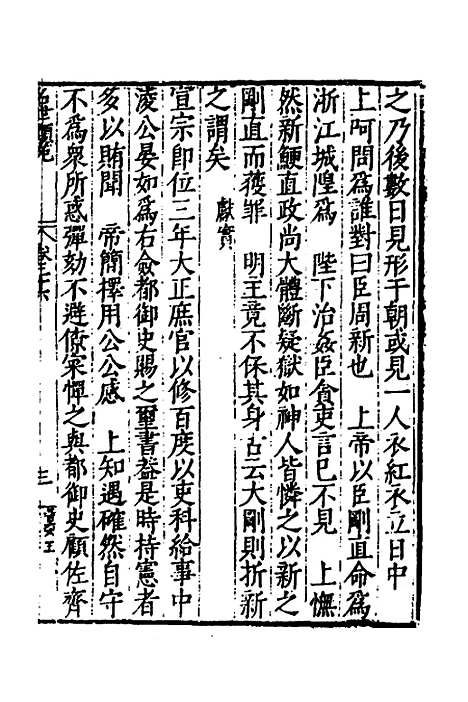 之乃後數日見形于朝或見一人衣紅衣立日中
上呵問爲誰對曰臣周新也　上帝以臣剛直命爲
浙江城隍爲　陛下治姦臣貪吏言已不見　上憮
然新鯁直政尚大體斷疑獄如神人皆憐之以新之
剛直而獲罪　明王竟不保其身古云大剛則折新
之謂矣　獻實
宣宗卽位三年大正庶官以修百度以吏科給事中
淩公晏如爲右僉都御史賜之璽書益是時持憲者
多以賄聞　帝簡擇用公公感　上知遇確然自守
不爲衆所惑彈劾不避僚寀憚之與都御史顧佐齊